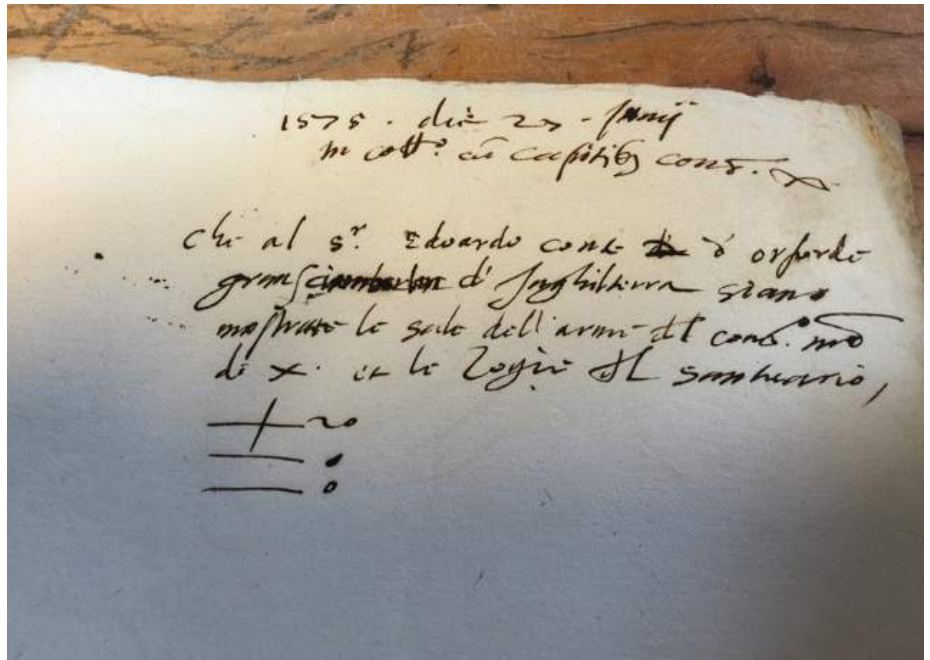 1575. die 27. Junij
in coll.º cũ capitibz cons. X
Che al s.r Edoardo conte d' orforde
gran d' Inghilterra siano
mostrate le sale dell'arme dl cons.º nrõ
di X. et le Zogie dl santuario,
20
0
0